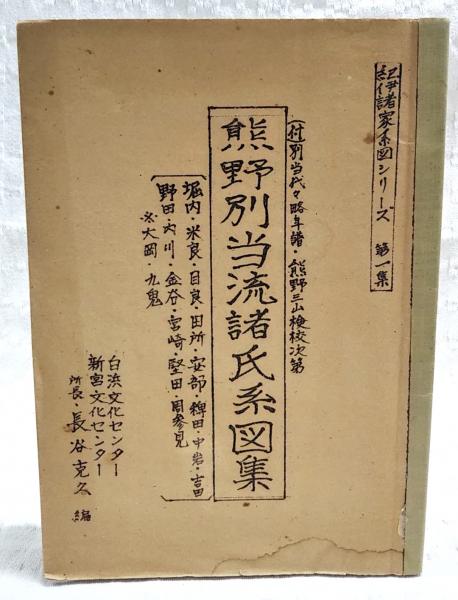 紀伊諸家系図シリーズ 第一集
(付)別当代々略年譜・熊野三山検校次第
熊野別当流諸氏系図集
堀内・米良・目良・田所・安部・稗田・中岩・吉田
野田・内川・金谷・宮崎・堅田・周参見
※大岡・九鬼
白浜文化センター
新宮文化センター
所長・長谷克久 編